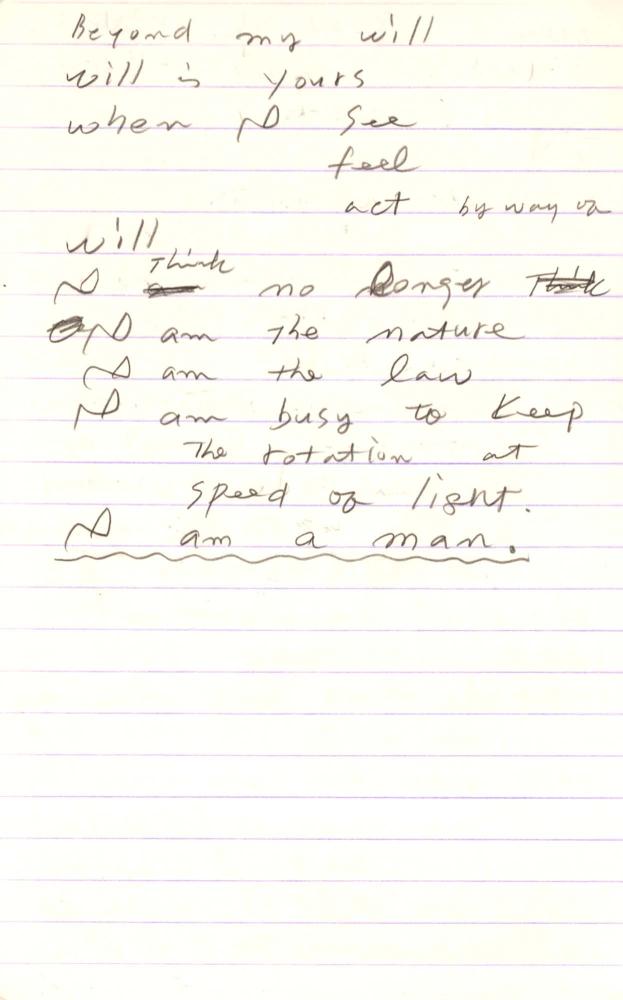 Beyond my will
will is yours
when I see
feel
act by way of
will
I think no longer
I am the nature
I am the law
I am busy to keep
the rotation at
speed of light.
I am a man.